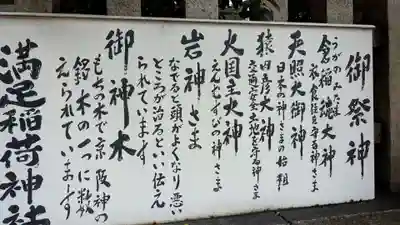 御祭神
うがのみたま
倉稲魂大神
衣食住を守る神さま
天照大御神
日本の神さまの始祖
猿田彦大神
交通安全土地を守る神さま
大国主大神
えんむすびの神さま
岩神さま
なでると頭がよくなり悪い
ところが治るといい伝え
られてます
御神木
もちの木で京阪神の
銘木の一つに数
えられています
満足稲荷神社